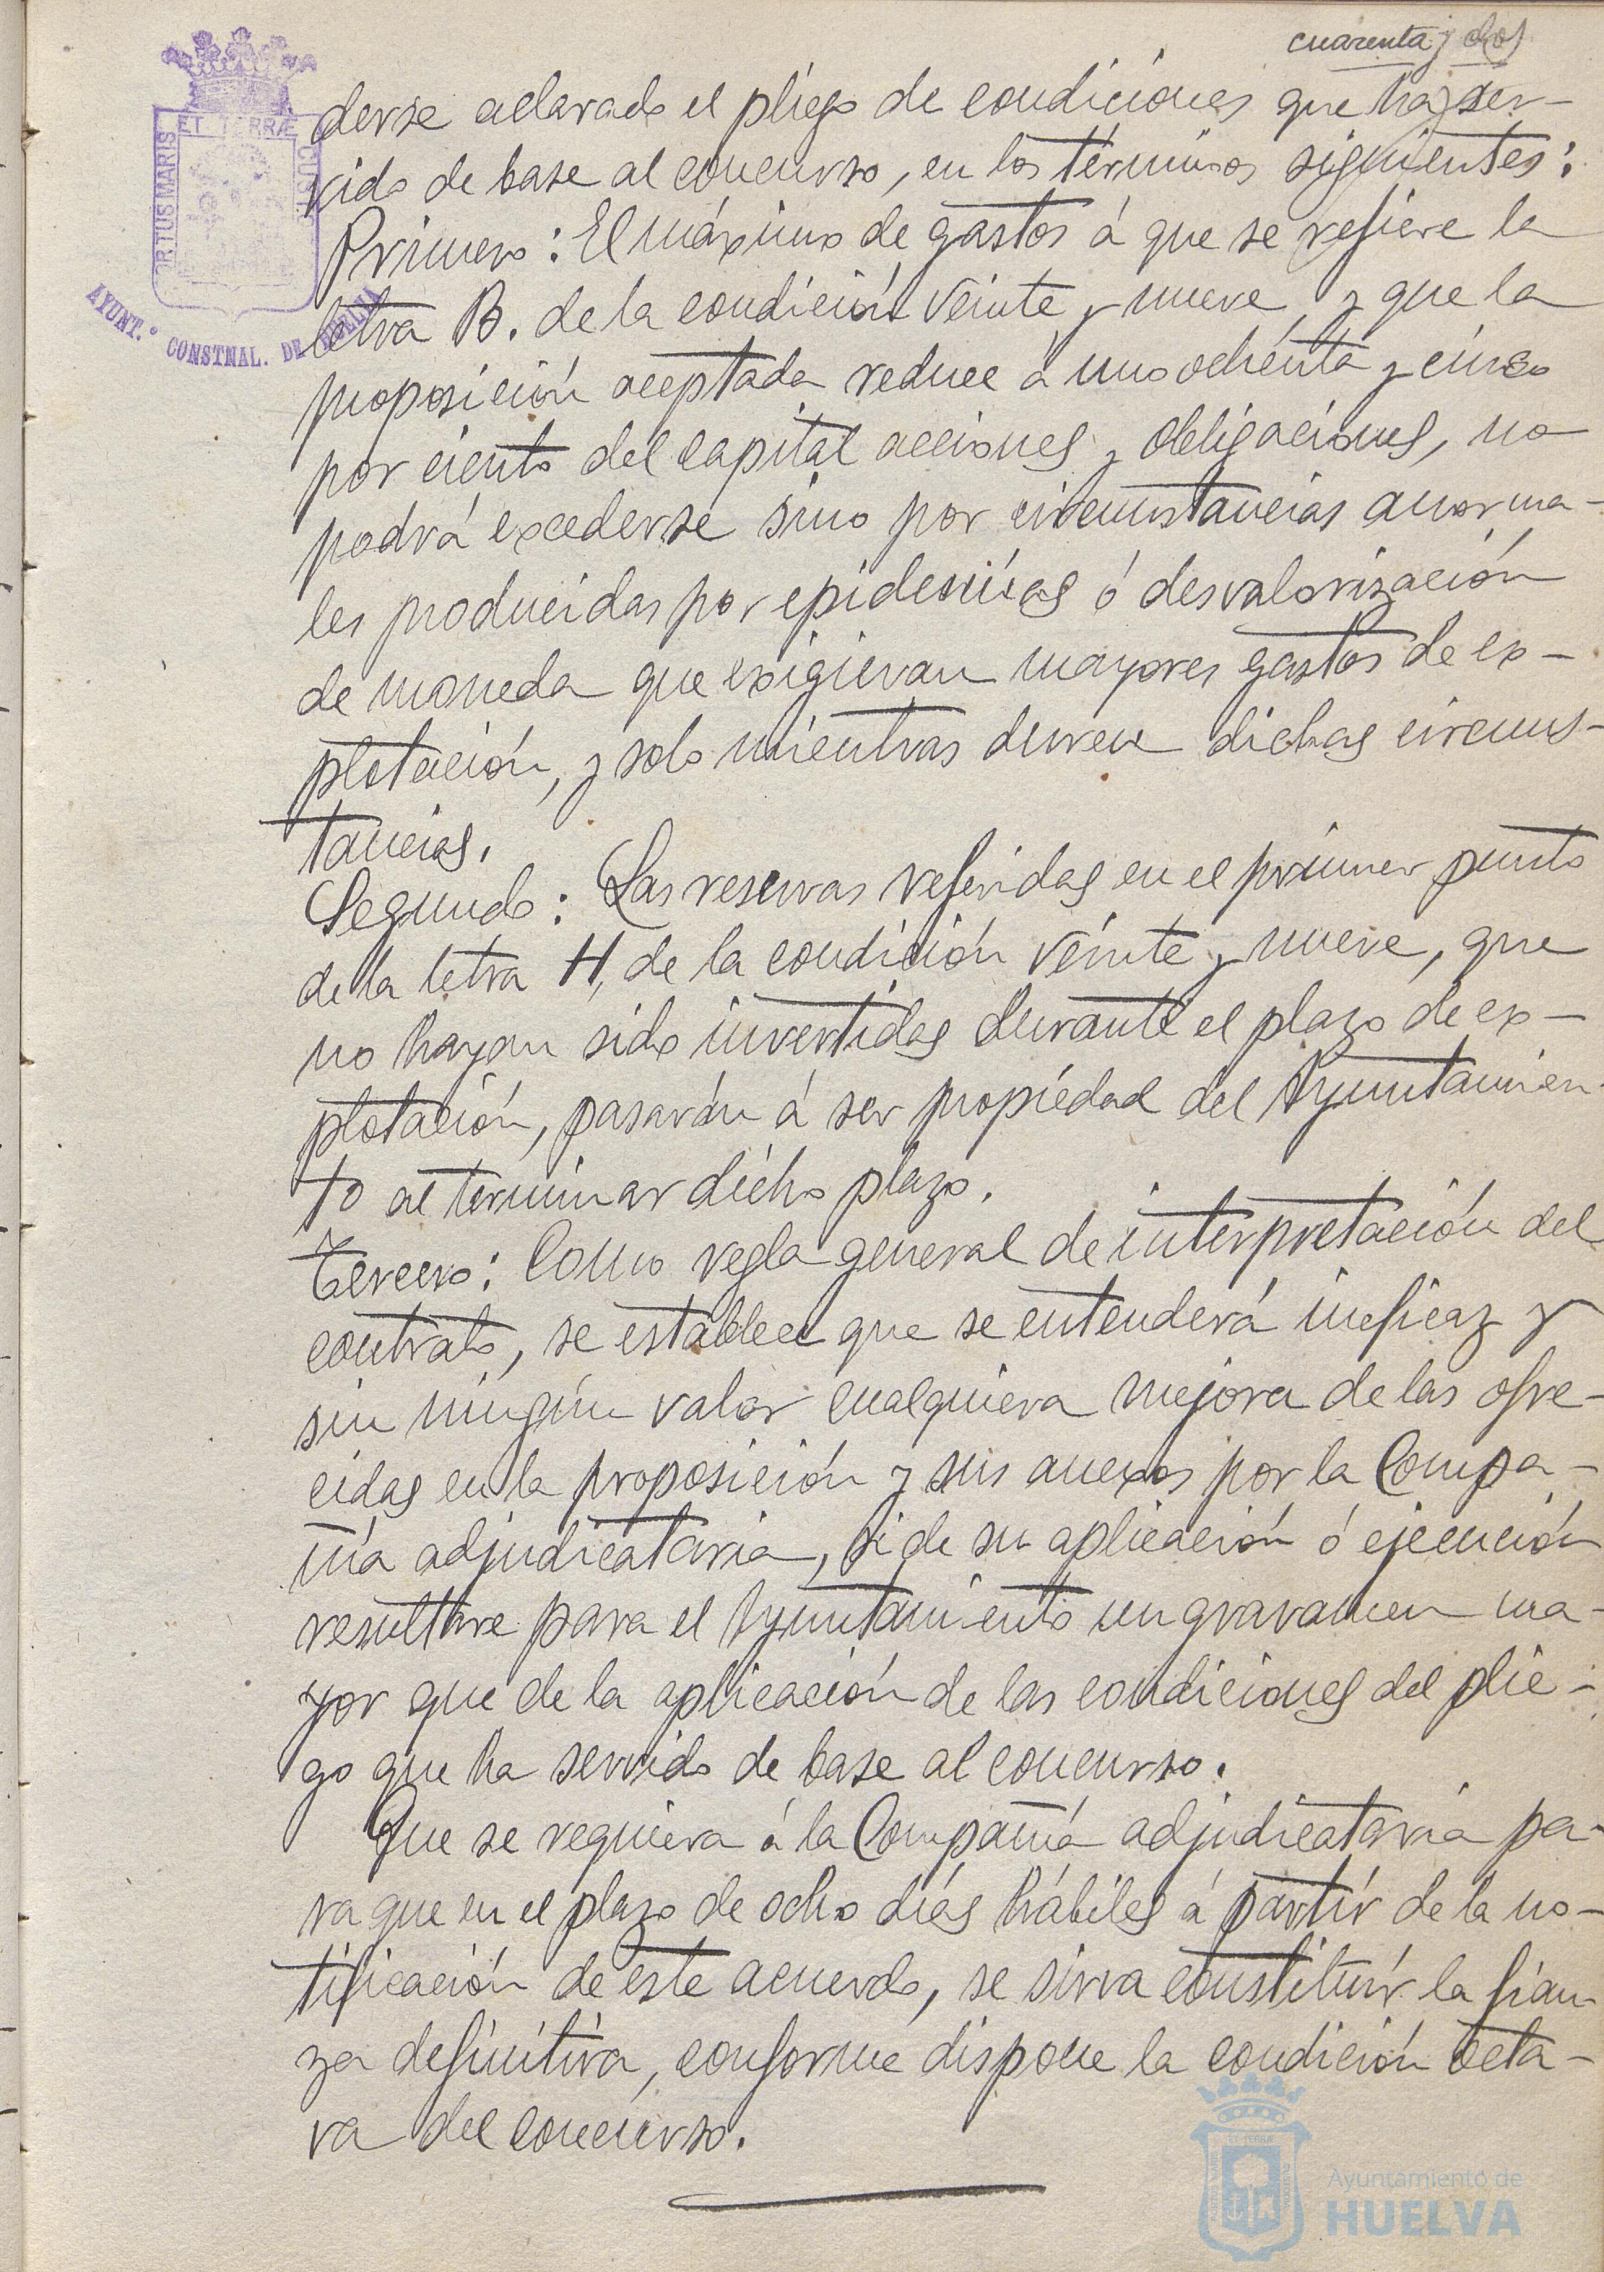 cuarenta y dos
derse aclarado el pliego de condiciones que ha ser-
vido de base al concurso, en los términos siguientes:
Primero: El máximo de gastos á que se refiere la
letra B. de la condición veinte y nueve y que la
proposición aceptada reduce á un ochenta y cinco
por ciento del capital acciones y obligaciones, no
podrá excederse sino por circunstancias anorma-
les producidas por epidemias ó desvalorización
de moneda que exigieran mayores gastos de ex-
plotación, y solo mientras duren dichas circuns-
tancias.
Segundo: Las reservas referidas en el primer punto
de la letra H, de la condición veinte y nueve, que
no hayan sido invertidas durante el plazo de ex-
plotación, pasarán á ser propiedad del Ayuntamien-
to al terminar dicho plazo.
Tercero: Como regla general de interpretación del
contrato, se establece que se entenderá ineficaz y
sin ningún valor cualquiera mejora de las ofre-
cidas en la proposición y sus anexos por la Compa-
ñía adjudicataria, si de su aplicación ó ejecución
resultare para el Ayuntamiento un gravamen ma-
yor que de la aplicación de las condiciones del plie-
go que ha servido de base al concurso.
Que se requiera á la Compañía adjudicataria pa-
ra que en el plazo de ocho días hábiles á partír de la no-
tificación de este acuerdo, se sirva constituír la fian-
za definitiva, conforme dispone la condición octa-
va del concurso.
PORTUS MARIS
ET TERRÆ
CUST.
AYUNT.º CONSTNAL. DE HUELVA
Ayuntamiento de
HUELVA